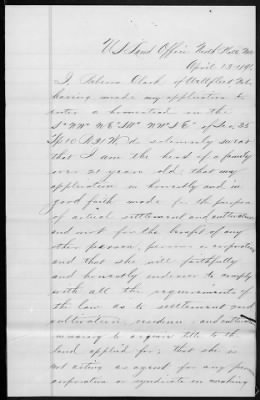 U.S. Land Office North Platte Neb
April 13 189
I Clark of Wallfleet Neb
having made my application to
enter a homestead on the
S½NW¼ NE SW¼ NW SE¼ of Sec 35
Tp 10 R 31 W. do solemnly swear
that I am the head of a family
over 21 years old that my
application is honestly and in
good faith made for the purpose
of actual settlement and cultivation
and not for the benefit of any
other person, persons or corporation
and that she will faithfully
and honestly endeavor to comply
with all the requirements of
the law as to settlement and
cultivation, residence and
necessary to acquire title to the
land applied for; that she is
not acting as agent for any person
corporation or syndicate in making